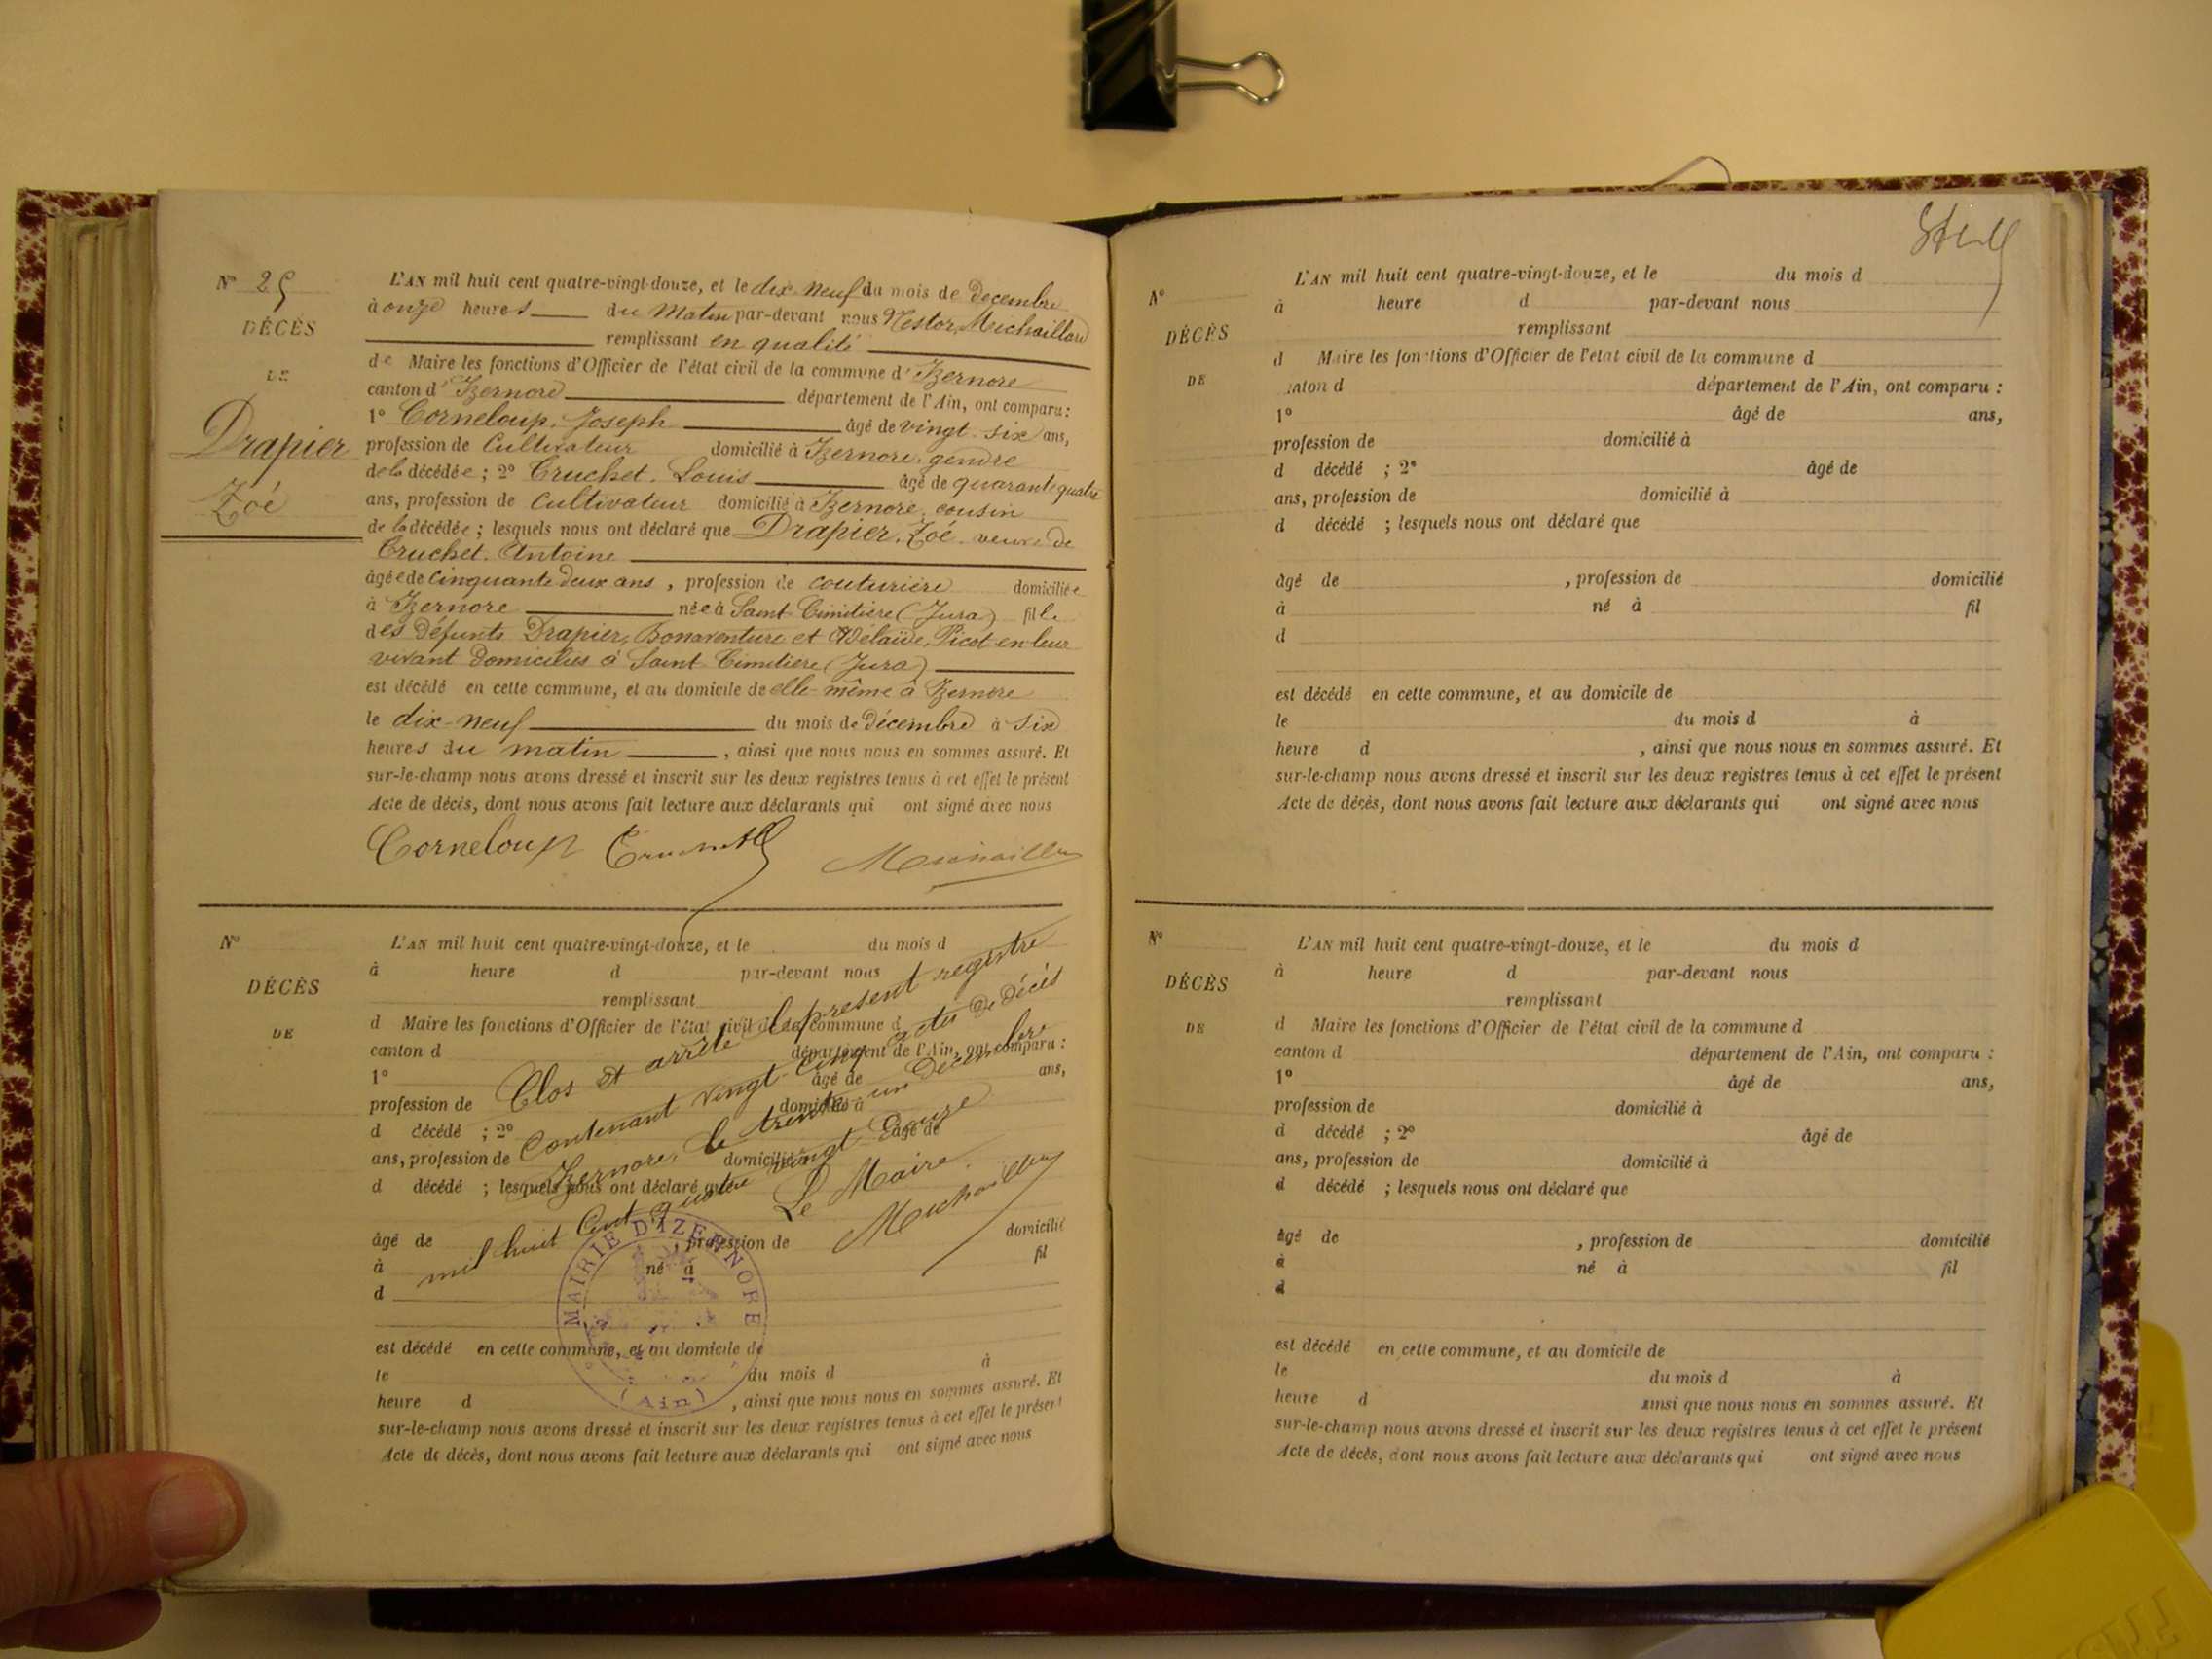 N° 25
DÉCÈS
DE
Drapier
Zoé
L'AN mil huit cent quatre-vingt-douze, et le dix-neuf du mois de Decembre
à onze heures du Matin par-devant nous Nestor, Michaillard
remplissant en qualité
de Maire les fonctions d'Officier de l'état civil de la commune d'Izernore
canton d'Izernore département de l'Ain, ont comparu :
1° Corneloup, Joseph âgé de vingt-six ans,
profession de Cultivateur domicilié à Izernore, gendre
de la décédée ; 2° Cruchet, Louis âgé de quarante quatre
ans, profession de Cultivateur domicilié à Izernore, cousin
de la décédée ; lesquels nous ont déclaré que Drapier, Zoé, veuve de
Cruchet, Antoine
âgée de Cinquante deux ans, profession de couturière domiciliée
à Izernore née à Saint (Jura) fille
des défunts Drapier, Bonaventure et Adelaïde, Picot en leur
vivant Domiciliés à Saint (Jura)
est décédé en cette commune, et au domicile de elle-même à Izernore
le dix-neuf du mois de Décembre à six
heures du matin, ainsi que nous nous en sommes assuré. Et
sur-le-champ nous avons dressé et inscrit sur les deux registres tenus à cet effet le présent
Acte de décès, dont nous avons fait lecture aux déclarants qui ont signé avec nous
Corneloup
N°
DÉCÈS
DE
L'AN mil huit cent quatre-vingt-douze, et le du mois d
à heure d par-devant nous
remplissant
d Maire les fonctions d'Officier de l'état civil de la commune d
canton d département de l'Ain, ont comparu :
1° âgé de ans,
profession de domicilié à
d décédé ; 2° âgé de
ans, profession de domicilié à
d décédé ; lesquels nous ont déclaré que
âgé de , profession de domicilié
à né à fil
d
est décédé en cette commune, et au domicile de
le du mois d à
heure d , ainsi que nous nous en sommes assuré. Et
sur-le-champ nous avons dressé et inscrit sur les deux registres tenus à cet effet le présent
Acte de décès, dont nous avons fait lecture aux déclarants qui ont signé avec nous
Clos et arrêté le présent registre
Contenant vingt-cinq actes de décès
Izernore, le trente un Décembre
mil huit Cent quatre vingt Douze
Le Maire.
Michaillard
MAIRIE D'IZERNORE
(Ain)
N°
DÉCÈS
DE
L'AN mil huit cent quatre-vingt-douze, et le du mois d
à heure d par-devant nous
remplissant
d Maire les fonctions d'Officier de l'état civil de la commune d
canton d département de l'Ain, ont comparu :
1° âgé de ans,
profession de domicilié à
d décédé ; 2° âgé de
ans, profession de domicilié à
d décédé ; lesquels nous ont déclaré que
âgé de , profession de domicilié
à né à fil
d
est décédé en cette commune, et au domicile de
le du mois d à
heure d , ainsi que nous nous en sommes assuré. Et
sur-le-champ nous avons dressé et inscrit sur les deux registres tenus à cet effet le présent
Acte de décès, dont nous avons fait lecture aux déclarants qui ont signé avec nous
N°
DÉCÈS
DE
L'AN mil huit cent quatre-vingt-douze, et le du mois d
à heure d par-devant nous
remplissant
d Maire les fonctions d'Officier de l'état civil de la commune d
canton d département de l'Ain, ont comparu :
1° âgé de ans,
profession de domicilié à
d décédé ; 2° âgé de
ans, profession de domicilié à
d décédé ; lesquels nous ont déclaré que
âgé de , profession de domicilié
à né à fil
d
est décédé en cette commune, et au domicile de
le du mois d à
heure d ainsi que nous nous en sommes assuré. Et
sur-le-champ nous avons dressé et inscrit sur les deux registres tenus à cet effet le présent
Acte de décès, dont nous avons fait lecture aux déclarants qui ont signé avec nous